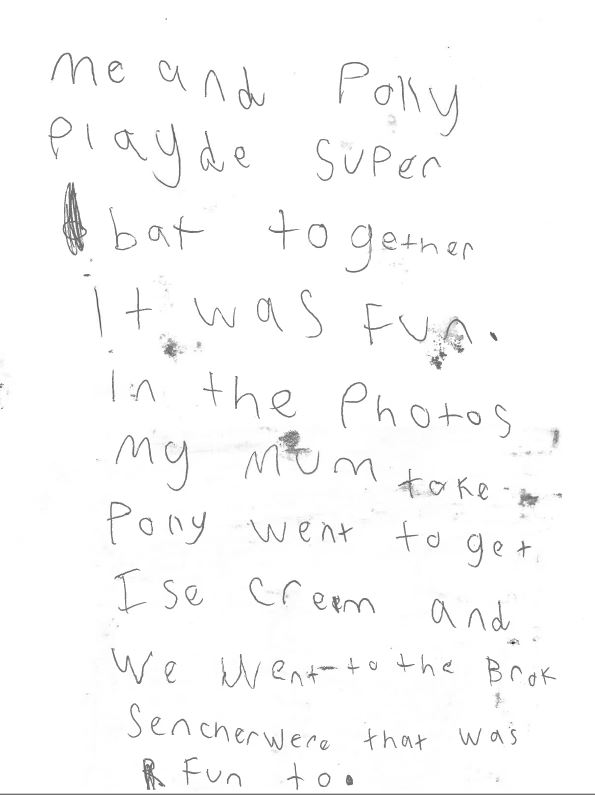 me and Polly
Playde super
bat together
it was Fun.
In the Photos
My Mum take
Polly went to get
Ise creem and
We Went to the Brok
Sencherwere that was
Fun to.